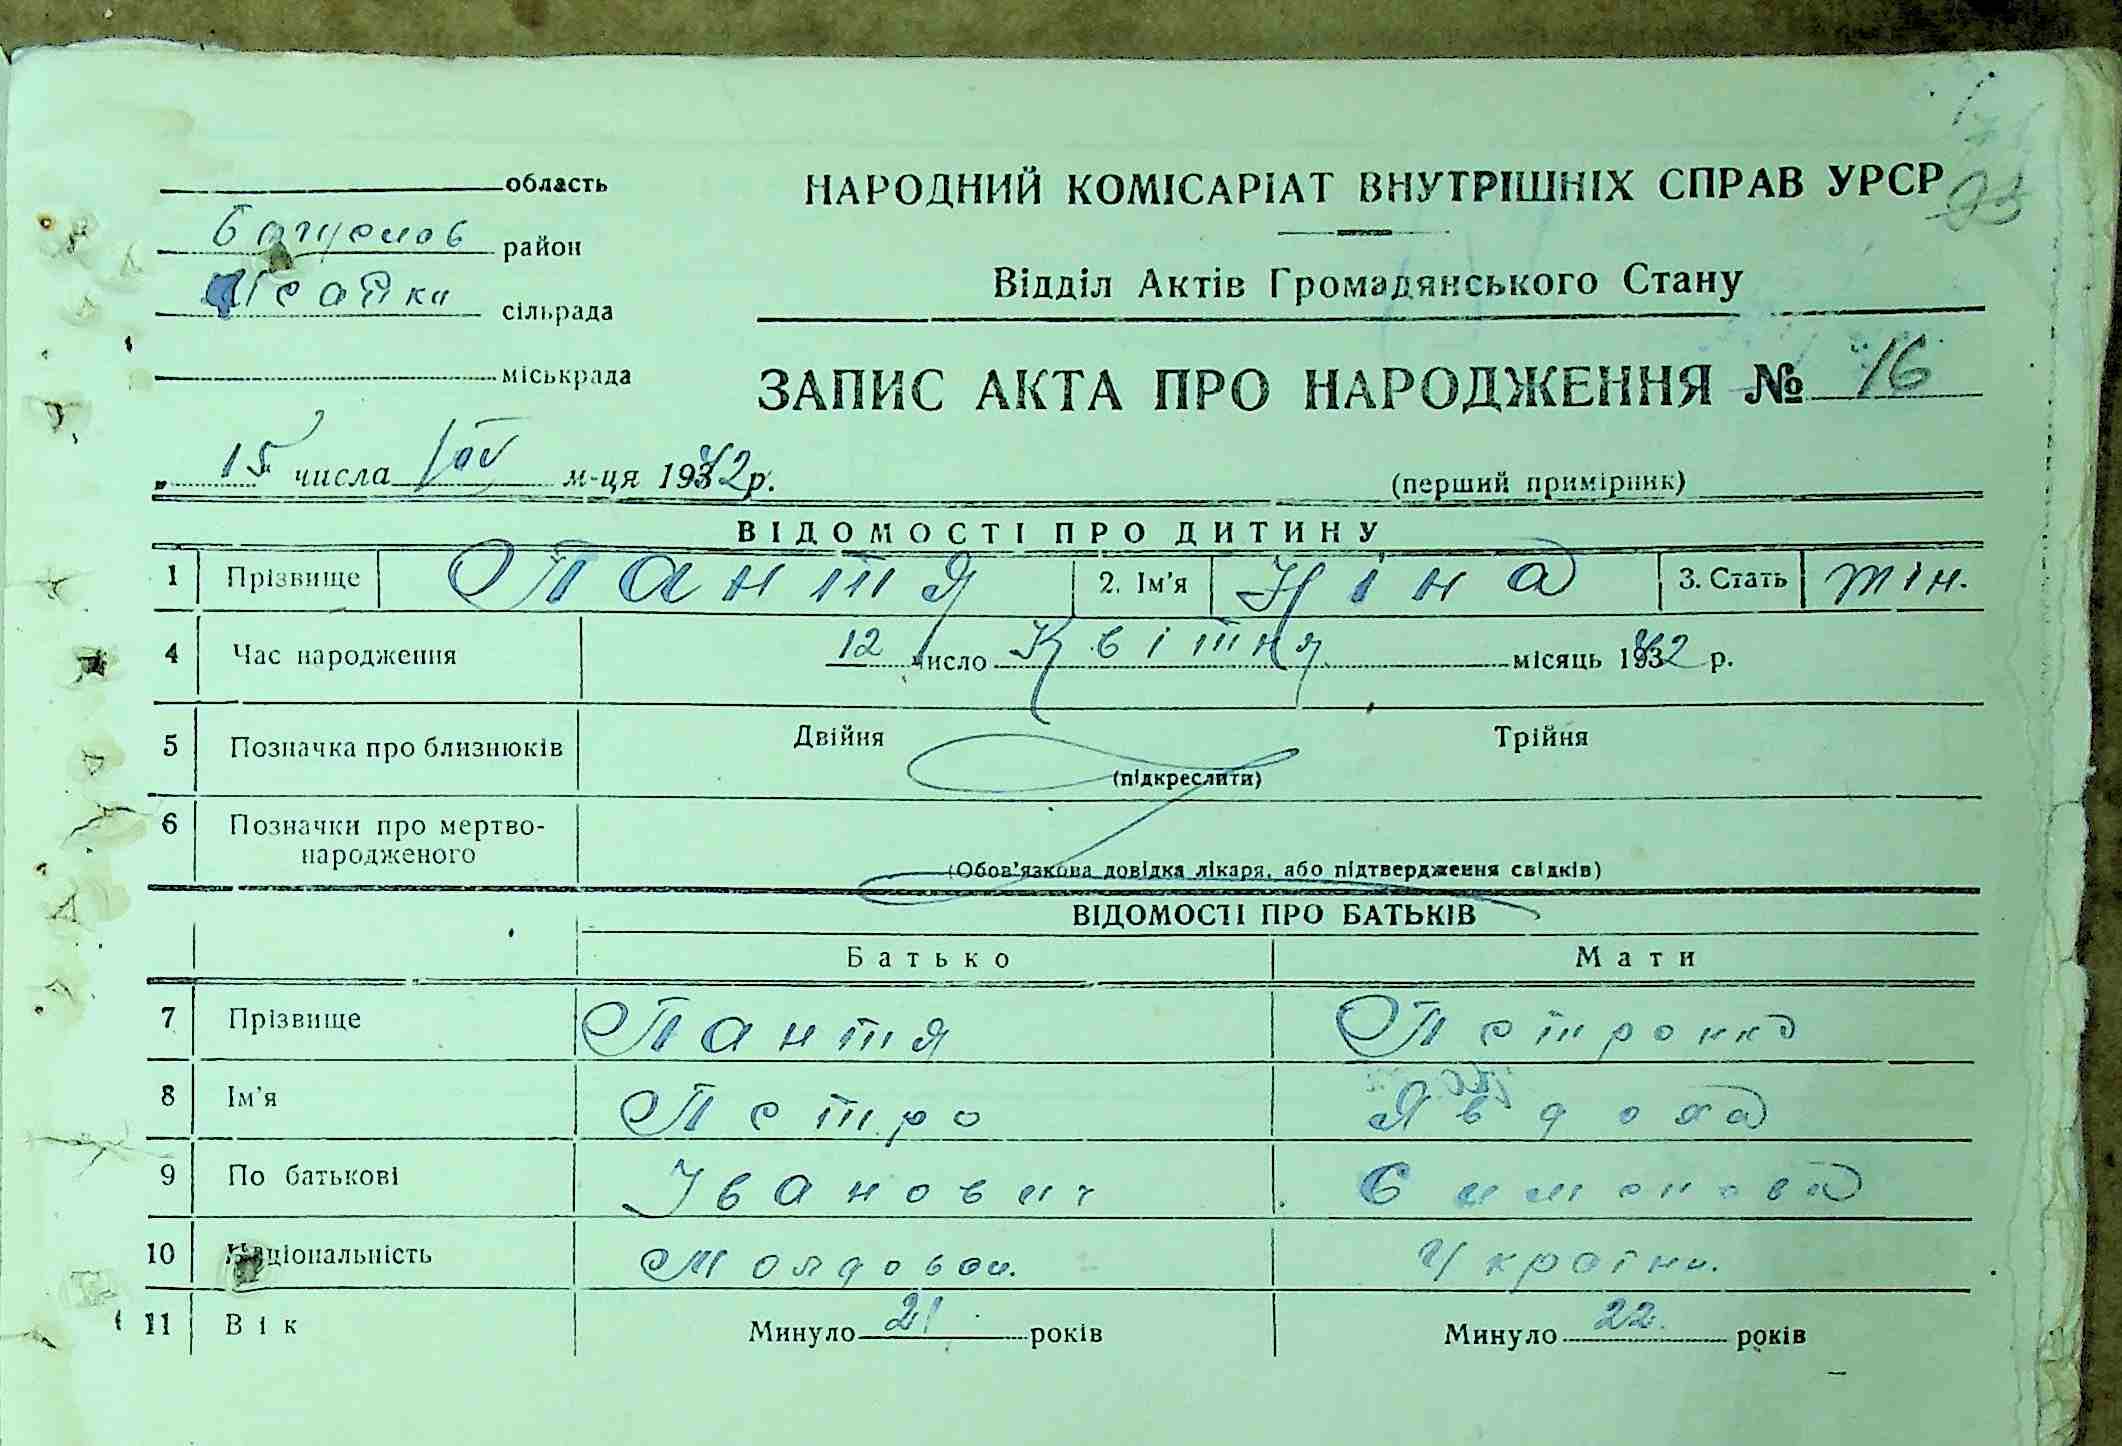 область
район
сільрада
міськрада
НАРОДНИЙ КОМІСАРІАТ ВНУТРІШНІХ СПРАВ УРСР
93
Відділ Актів Громадянського Стану
ЗАПИС АКТА ПРО НАРОДЖЕННЯ № 16
„ 15 числа м-ця 1942 р.
(перший примірник)
ВІДОМОСТІ ПРО ДИТИНУ
1 Прізвище Пантя 2. Ім'я Ніна 3. Стать жін.
4 Час народження 12 число Квітня місяць 1942 р.
5 Позначка про близнюків Двійня Трійня
(підкреслити)
6 Позначки про мертво-
народженого
(Обов'язкова довідка лікаря, або підтвердження свідків)
ВІДОМОСТІ ПРО БАТЬКІВ
Батько Мати
7 Прізвище Пантя Петренко
8 Ім'я Петро Явдоха
9 По батькові Іванович Симонова
10 Національність Молдован. Українк.
11 Вік Минуло 21 років Минуло 22 років